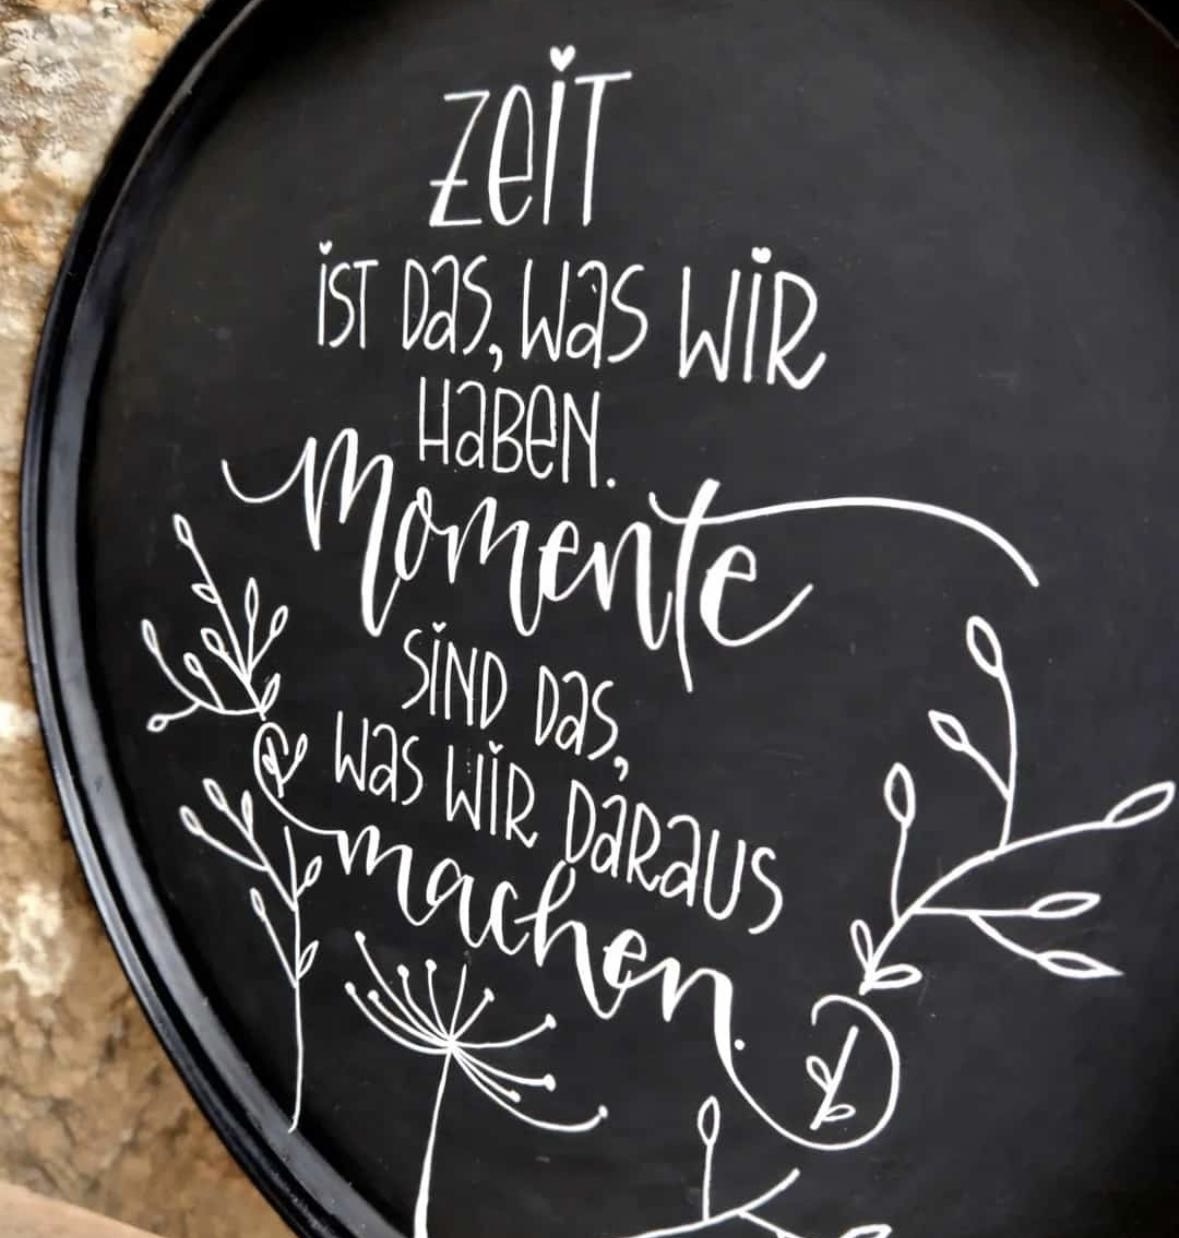 Zeit
ist das, was wir
haben.
Momente
sind das,
was wir daraus
machen.